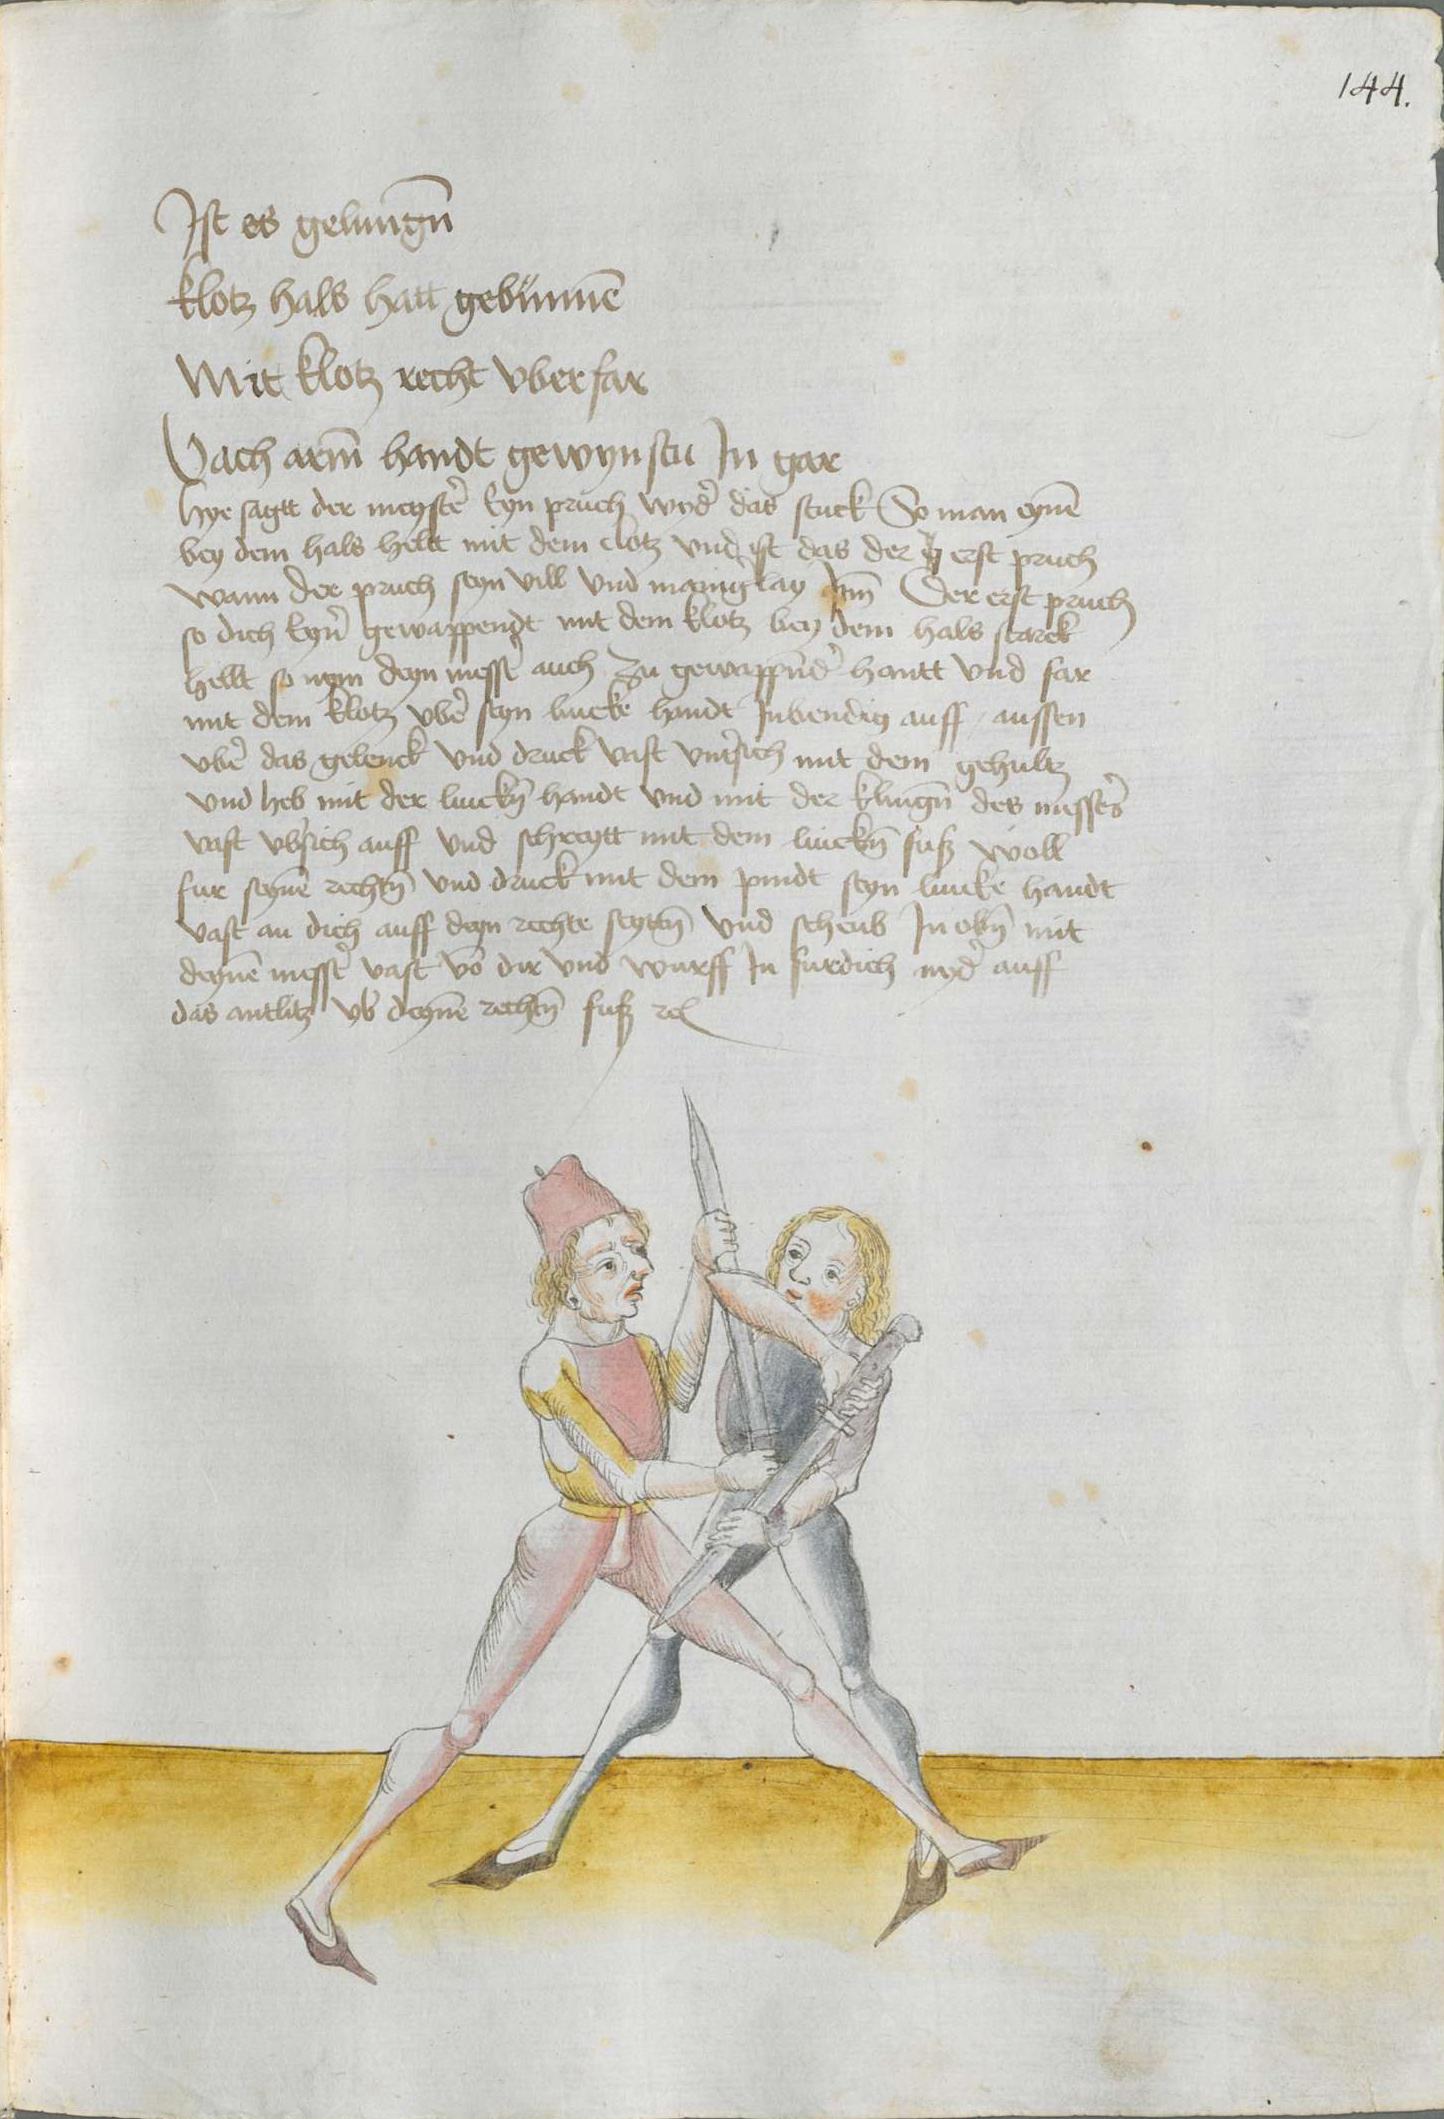 144.
Ist es gelungn̄
klotz hals hatt gebu̎nnē
Mit klotz recht vberfar
Vach arm̄ handt gewynstu In gar
hye sagtt der meyster̄ Eyn pruch wyder̄ das stuck So man eynē
bey dem hals heltt mit dem clotz vnd ist das der erst pruch
wann der pruch seyn vill vnd manig̉lay Der erst pruch
so dich Eyner̄ gewappendt mit dem klotz bey dem hals starck
hellt so nym deyn messer̄ auch zu gewappnd̄er hantt vnd far
mit dem klotz vber̄ seyn lincke handt Inbendig auff aussen
vber̄ das gelenck vnd druck vast vntersich mit dem gehultz
vnd heb mit der linckn̄ handt vnd mit der klingn̄ des messers̄
vast vbersich auff vnd schreytt mit dem linckn̄ fuß woll
fur seynē rechtn̄ vnd druck mit dem pindt seyn lincke handt
vast an dich auff deyn rechte seyttn̄ vnd scheub In obn̄ mit
deynē messer̄ vast vō dir vnd wurff In furdich nyder̄ auff
das antlitz vb̄ deynē rechtn̄ fuß rc